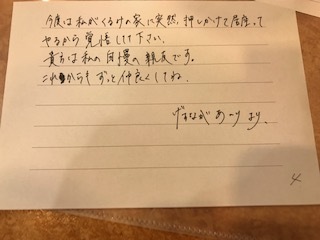 今度は私がくるけの家に突然押しかけて居座って
やるから覚悟してて下さい。
貴方は私の自慢の親友です。
これからも ずっと仲良くしてね。
あーり より、
4